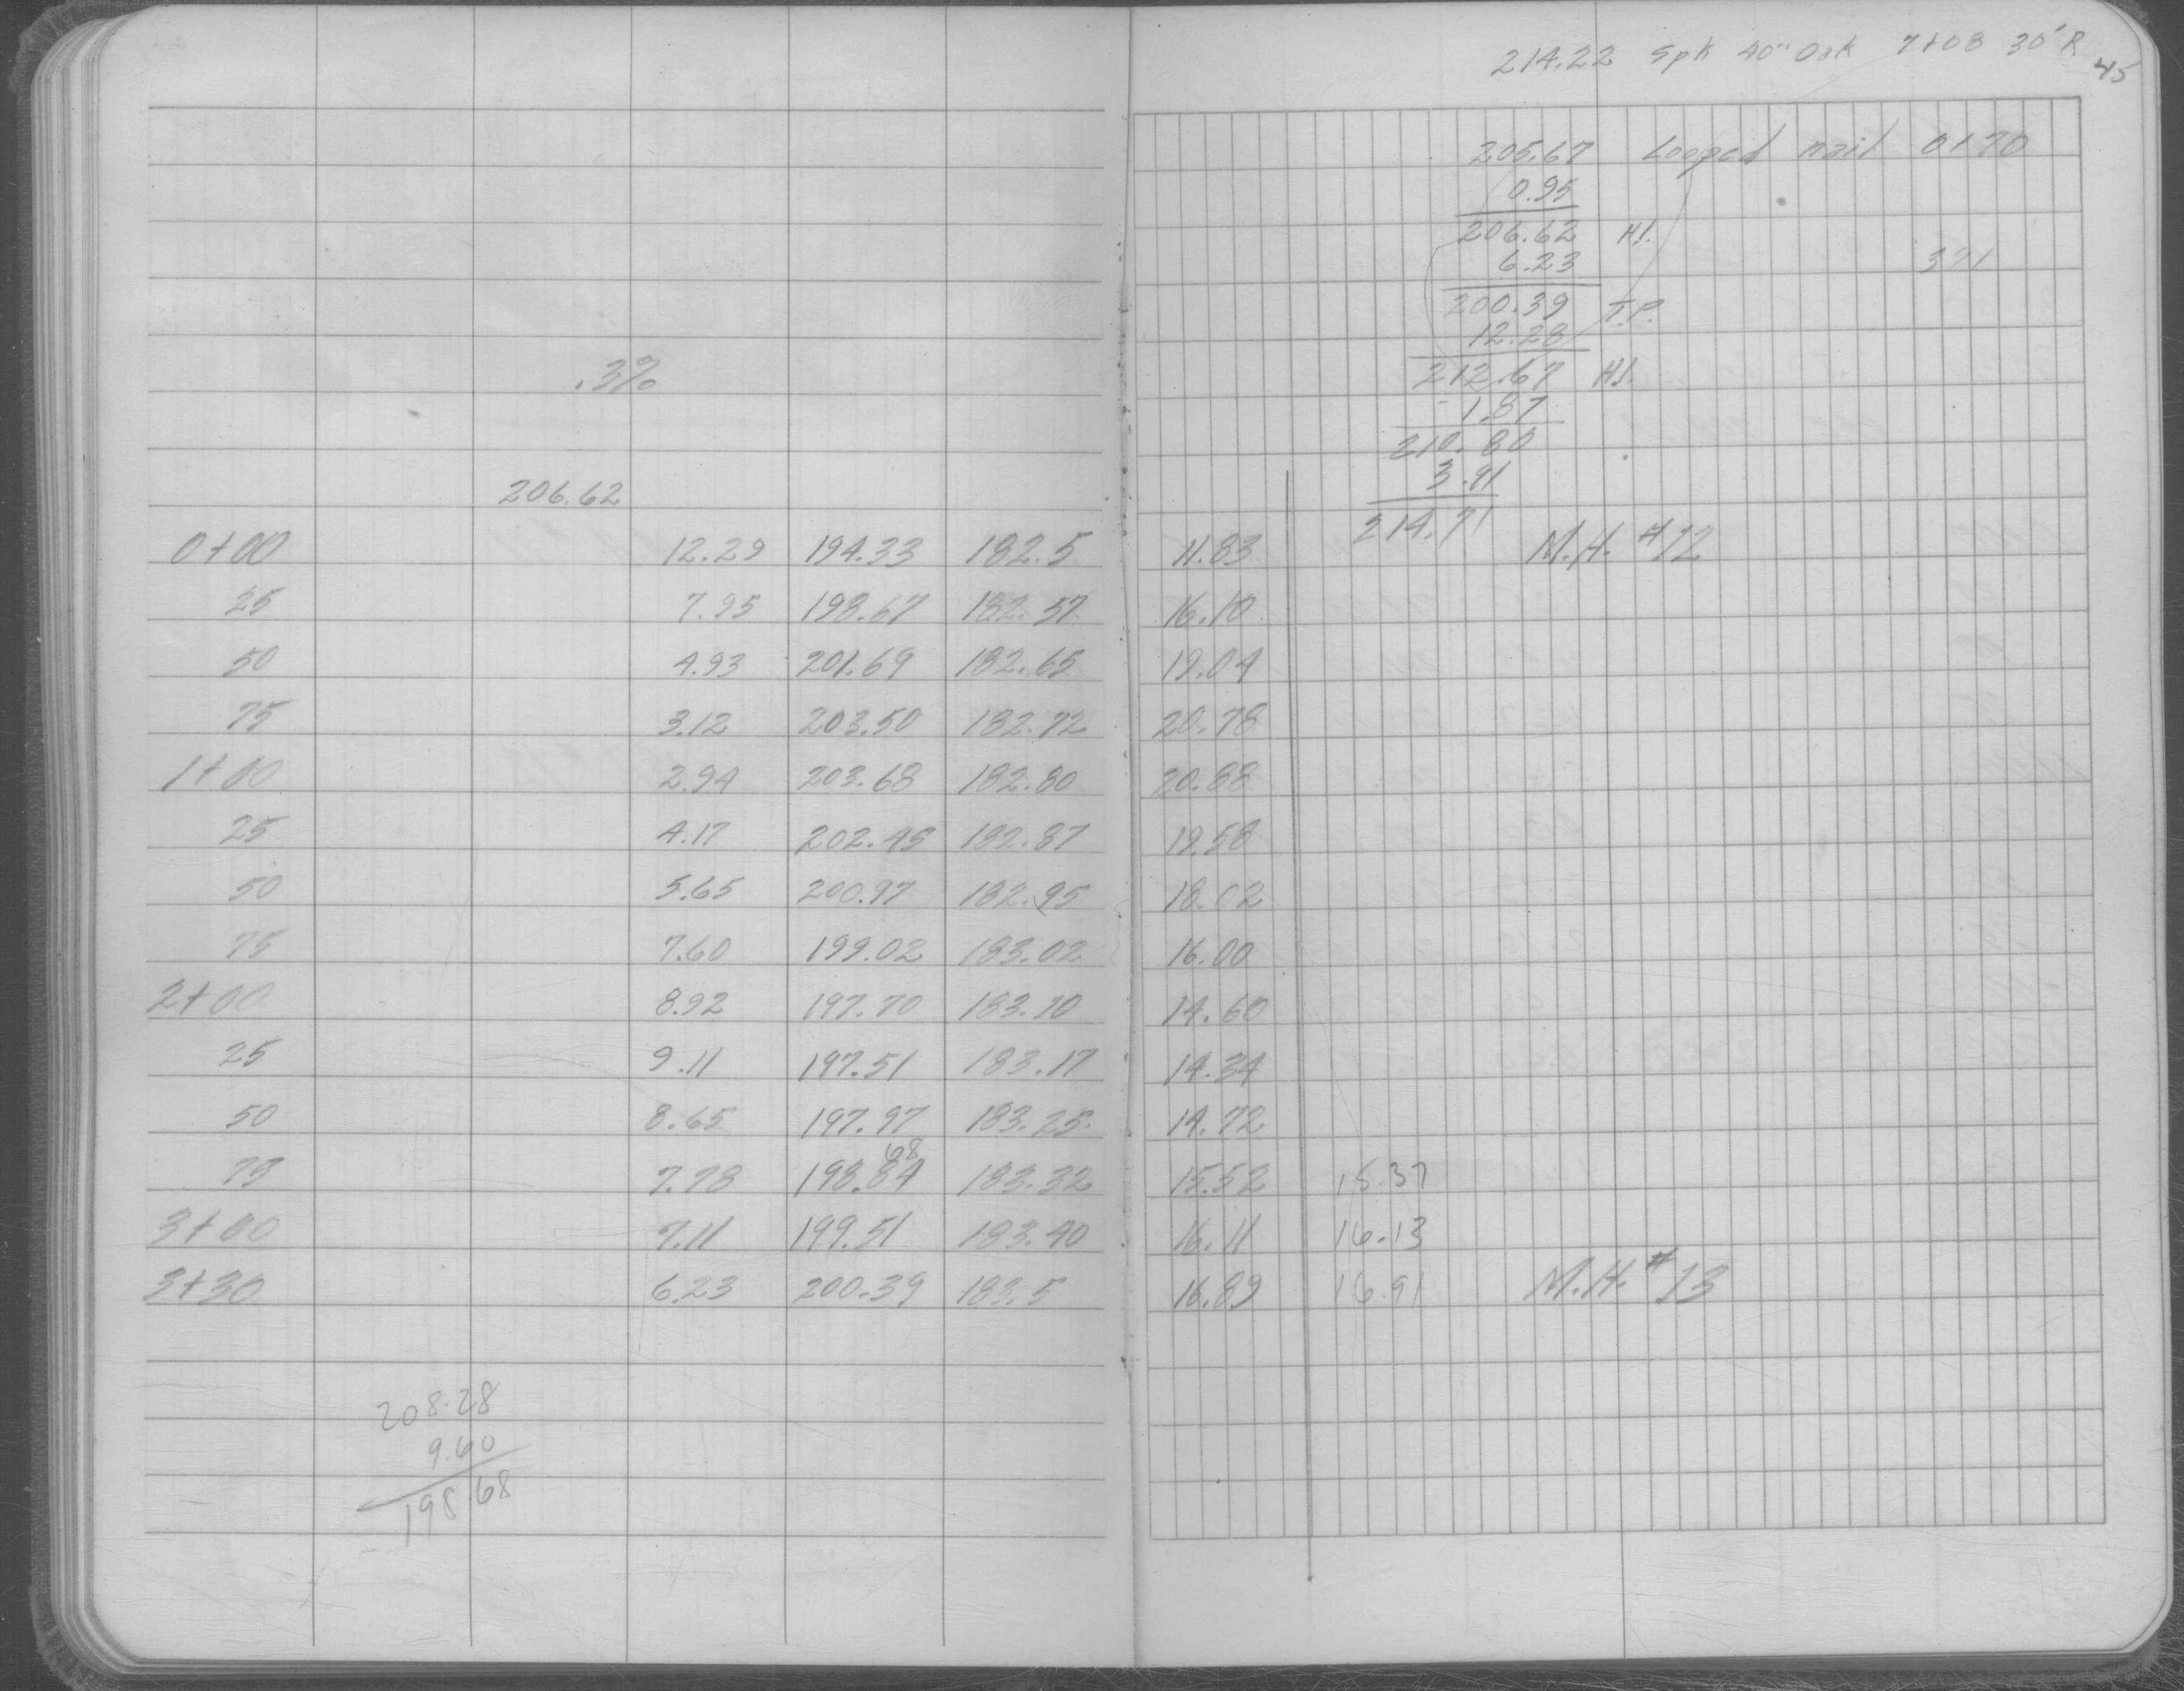 214.22 Spk 40" Oak 7+08 30' R
45
205.67 Looped nail 0+70
0.95
206.62 H.I.
6.23 391
200.39 T.P.
12.28
.3% 212.67 H.I.
- 1.87
210.80
206.62 3.91
214.71
0+00 12.29 194.33 182.5 11.83 M.H. #12
25 7.95 198.67 182.57 16.10
50 4.93 201.69 182.65 19.04
75 3.12 203.50 182.72 20.78
1+00 2.94 203.68 182.80 20.88
25 4.17 202.45 182.87 19.58
50 5.65 200.97 182.95 18.02
75 7.60 199.02 183.02 16.00
2+00 8.92 197.70 183.10 14.60
25 9.11 197.51 183.17 14.34
50 8.65 197.97 183.25 14.72
68
75 7.78 198.84 183.32 15.52 15.37
3+00 7.11 199.51 183.40 16.11 16.13
3+30 6.23 200.39 183.5 16.89 16.91 M.H. #13
208.28
9.60
198.68